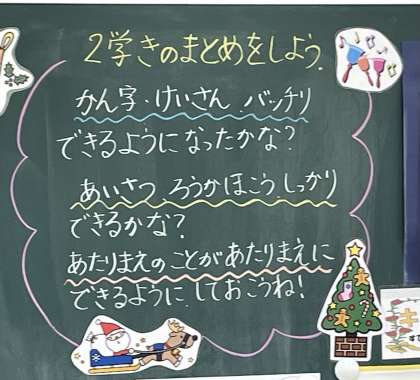 2学きのまとめをしよう.
かん字・けいさん バッチリ
できるようになったかな?
あいさつ ろうかほこう しっかり
できるかな?
あたりまえのことがあたりまえに
できるように しておこうね!